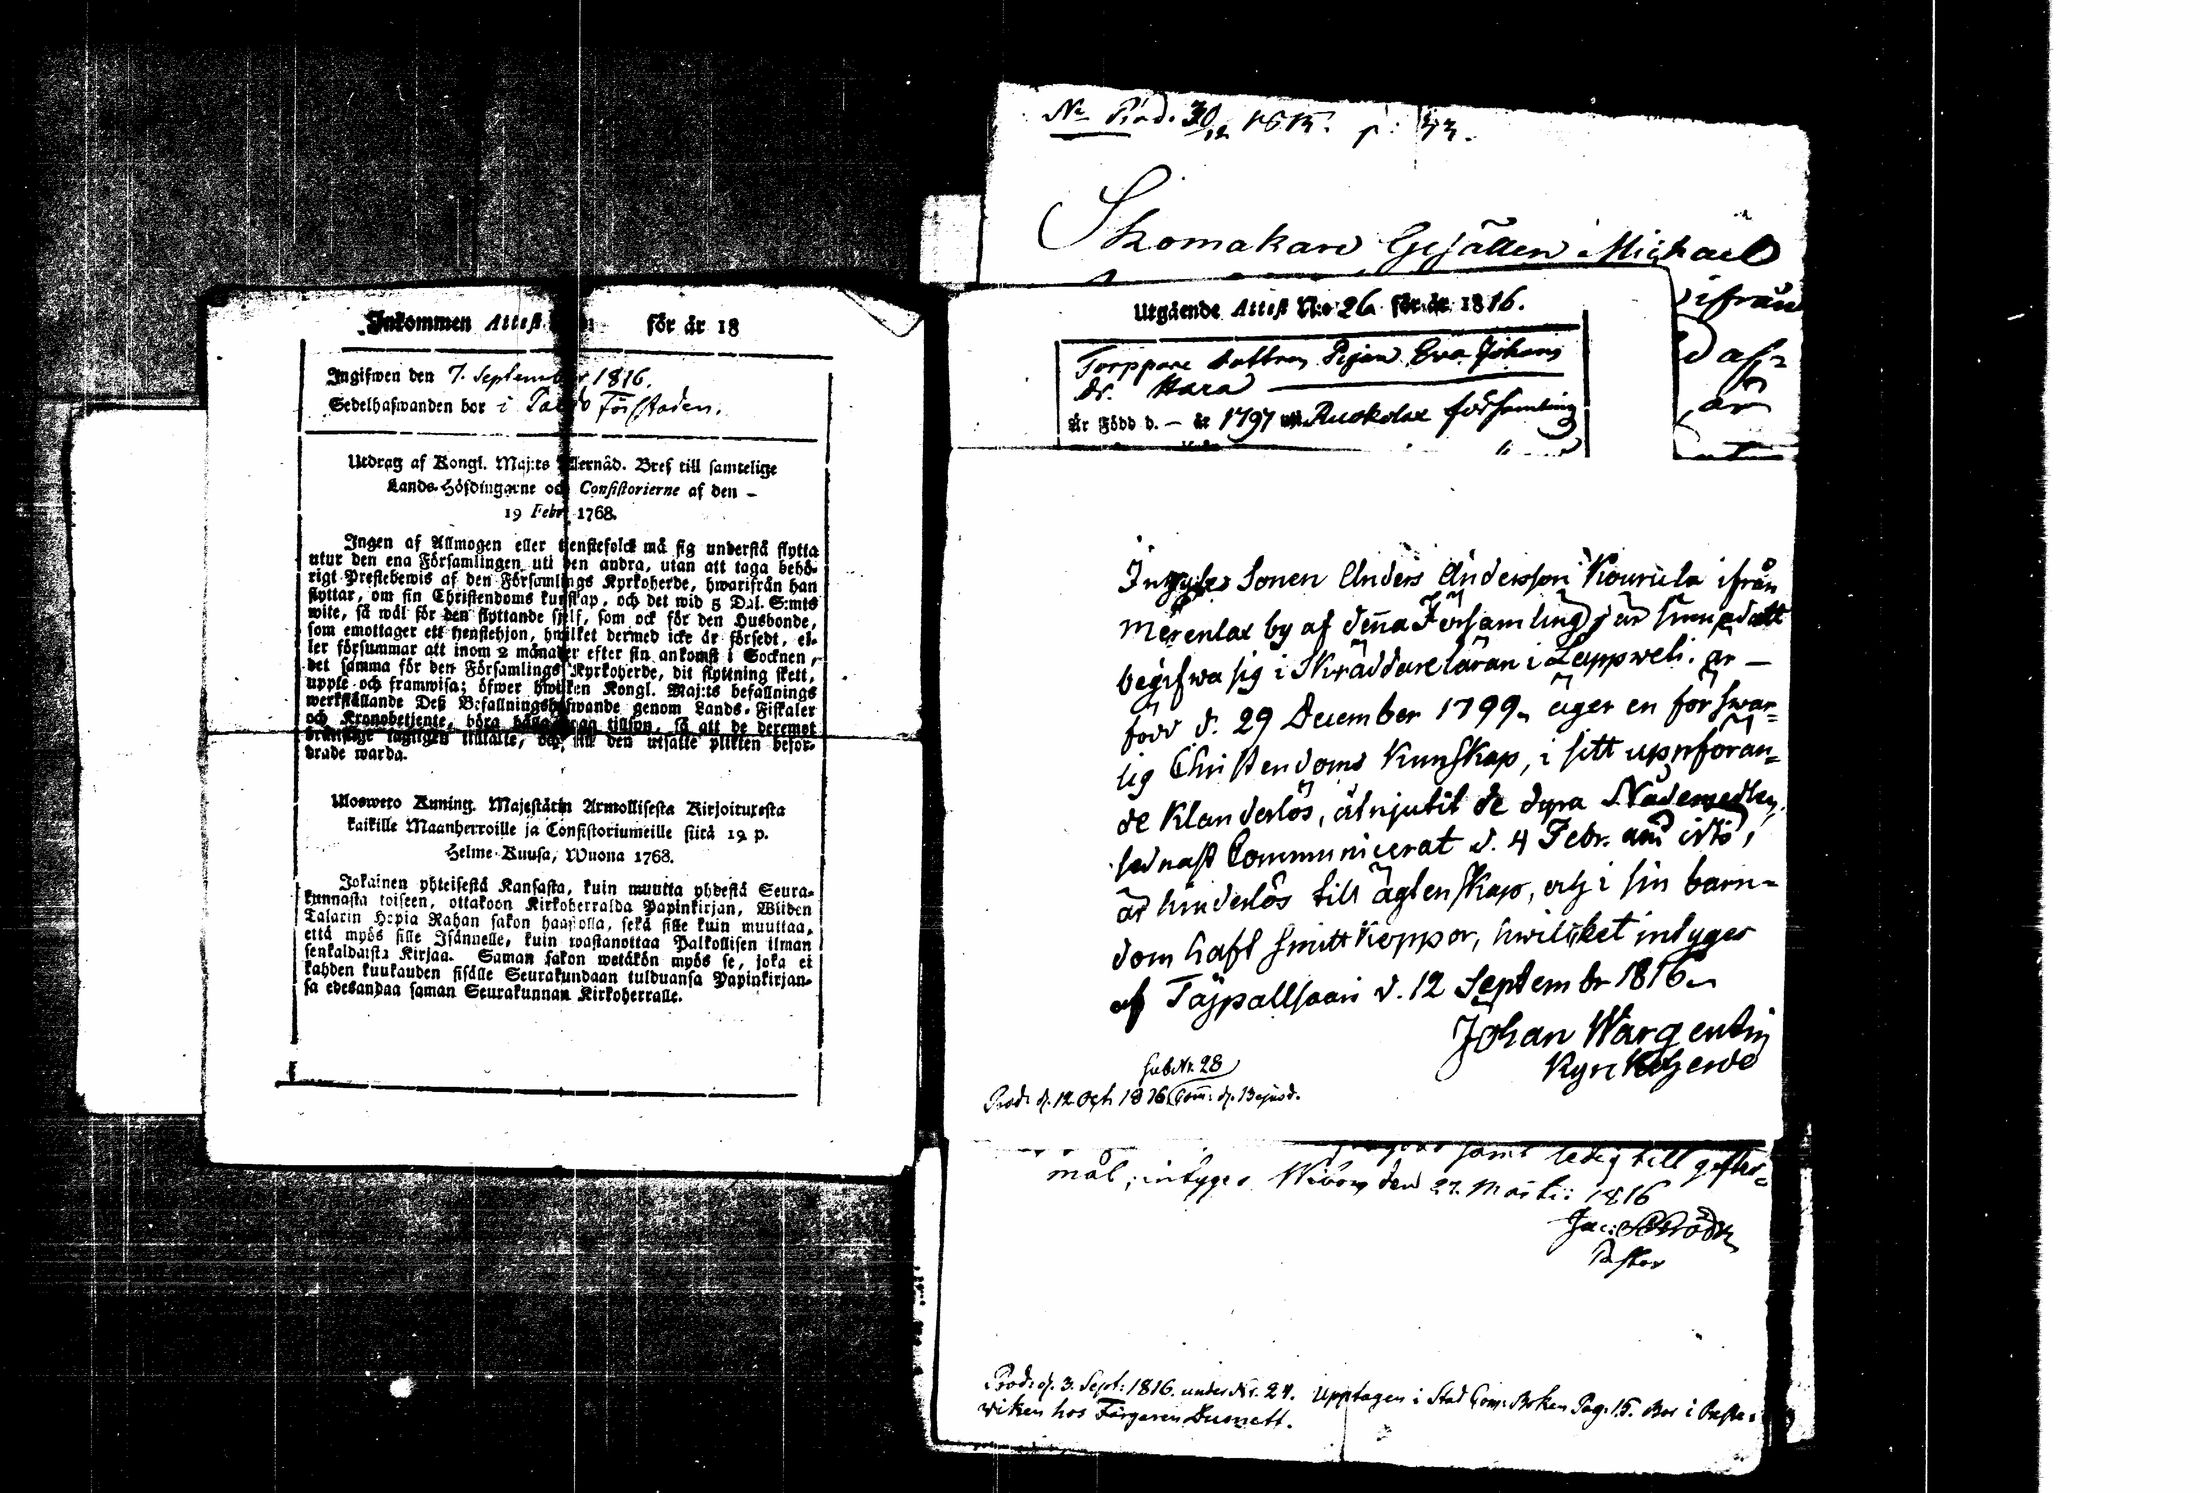 Inkommen Attest för år 18
Ingifwen den 7. September 1816.
Sedelhafwanden bor i Förstaden.
Utdrag af Kongl. Maj:ts Allernåd. Bref till samtelige
Lands-Höfdingarne och Consistorierne af den –
19 Febr. 1768.
Ingen af Allmogen eller tjenstefolck må sig understå flytta
utur den ena Församlingen uti den andra, utan att taga behö-
rigt Prestebewis af den Församlings Kyrkoherde, hwarifrån han
flyttar, om sin Christendoms kunskap, och det wid 5 Dal. S:mts
wite, så wäl för den flyttande sjelf, som ock för den Husbonde,
som emottager ett tjenstehjon, hwilket dermed icke är försedt, el-
ler försummar att inom 2 månader efter sin ankomst i Socknen,
det samma för den Församlings Kyrkoherde, dit flyttning skett,
uppte och framwisa; öfwer hwilken Kongl. Maj:ts befallnings
werkställande Deß Befallningshafwande genom Lands-Fiskaler
och Kronobetjente, böra hålla noga tillsyn, så att de deremot
brottslige lagligen tilltalte, och till den utsatte plikten befor-
drade warda.
Ulosweto Kuning. Majestätin Armollisesta Kirjoituxesta
kaikille Maanherroille ja Consistoriumeille siitä 19 p.
Helme-Kuusa, Wuona 1768.
Jokainen yhteisestä Kansasta, kuin muutta yhdestä Seura-
kunnasta toiseen, ottakoon Kirkoherralda Papinkirjan, Wiiden
Talarin Hopia Rahan sakon haastolla, sekä sille kuin muuttaa,
että myös sille Isännelle, kuin wastanottaa Palkollisen ilman
senkaldaista Kirjaa. Saman sakon wetäkön myös se, joka ei
kahden kuukauden sisälle Seurakundaan tulduansa Papinkirjan-
sa edesandaa saman Seurakunnan Kirkoherralle.
No Prod. 30/12 1815. p: 33.
Skomakare Gesällen Michael
ifrån
är
Utgående Attest N:o 26 för år 1816.
Torppare dottren Pigan Eva Johans
dr. Hara
Är Född d. – år 1797 Ruokolax församling
Inhyses Sonen Anders Andersson Kouriela ifrån
Merenlax by af denna Församling, är sinnad att
begifwa sig i Skräddareläran i Lappweli. är –
född d. 29 December 1799, äger en förswar=
lig Christendoms Kunskap, i sitt uppföran=
de Klanderlös, åtnjutit de dyra Nådemedlen,
sednast Communicerat d. 4 Febr. anni
är hinderlös till ägtenskap, och i sin barn=
dom haft Smittkoppor, hwilket intygar
af Taipallsaari d. 12 September 1816.
Johan Wargentin
Kyrckoherde
sub Nr. 28
Prod. d. 12 Oct. 1816 Com. d. 13 ejusd.
samt ledig till gifter=
mål, intygar Wiborg den 27. Martii 1816
Pastor
Prod. d. 3. Sept. 1816. under Nr. 24. Upptagen i Stads Com: Boken Pag. 15. Bor i
wiken hos Färgaren